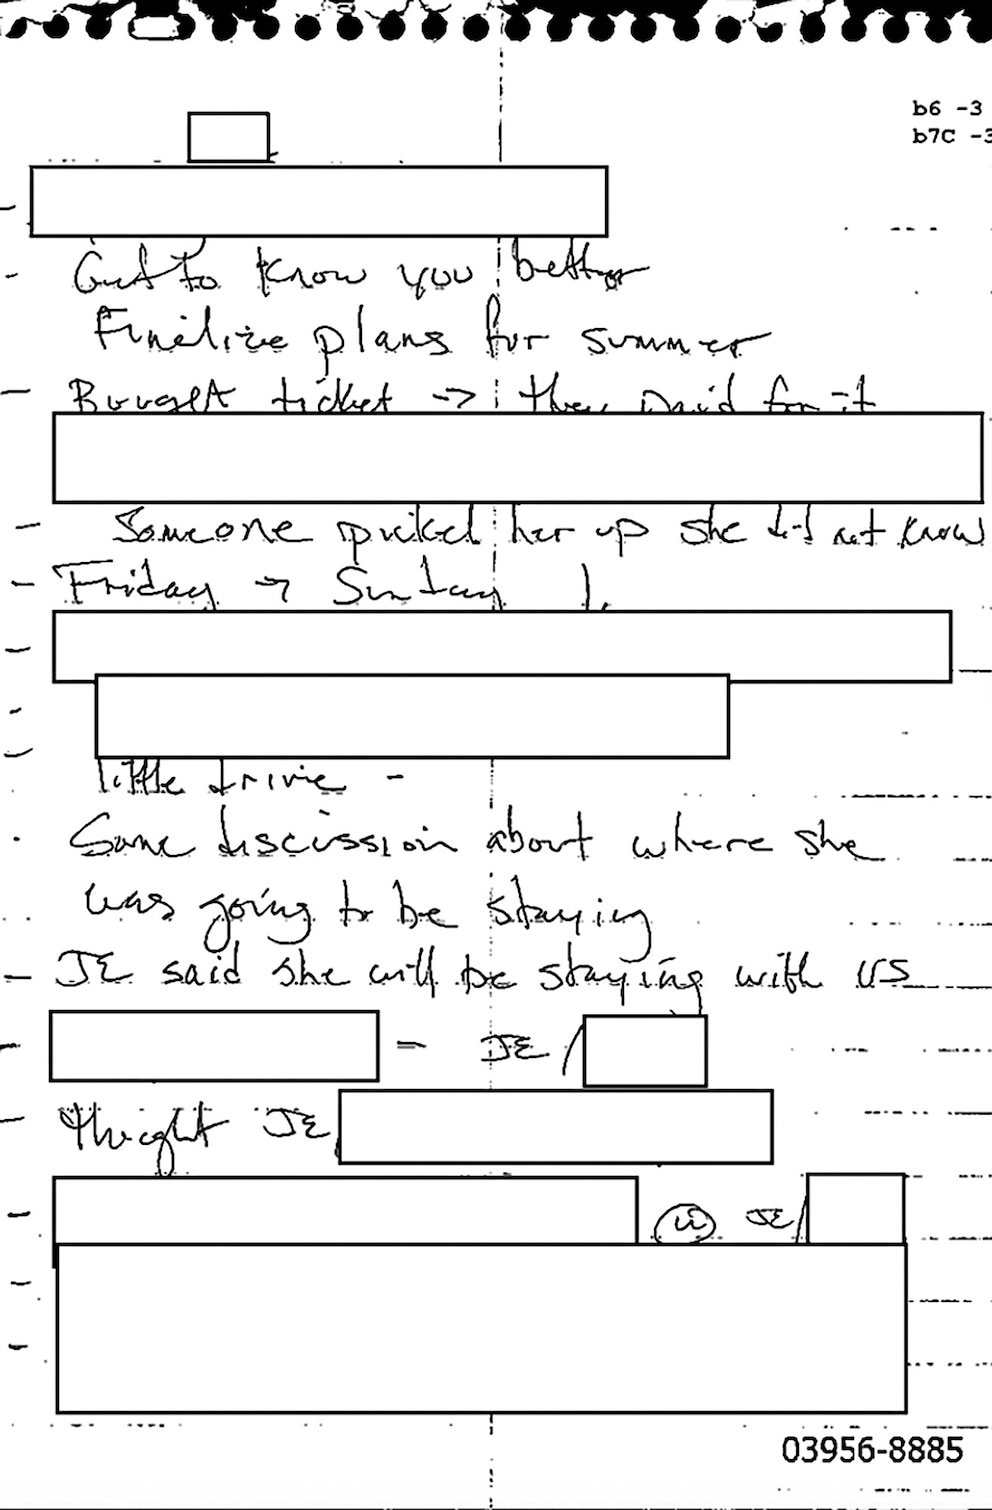 b6 -3
b7C -3
- Get to know you better
Finalize plans for summer
- Bought ticket -> they paid for it
- Someone picked her up she did not know
- Friday -> Sunday
-
-
little drive -
Some discussion about where she
was going to be staying
- JE said she will be staying with us
- = JE /
- thought JE
- w JE/
-
-
03956-8885